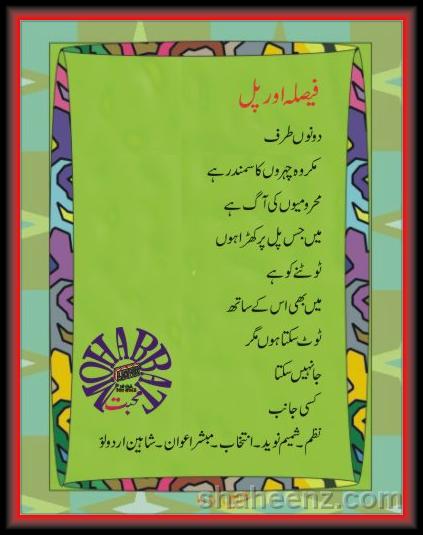 فیصلہ اور پل
دونوں طرف
مکروہ چہروں کا سمندر ہے
محرومیوں کی آگ ہے
میں جس پل پر کھڑا ہوں
ٹوٹنے کو ہے
میں بھی اس کے ساتھ
ٹوٹ سکتا ہوں مگر
جا نہیں سکتا
کسی جانب
MOHABBAT
محبت
نظم۔شمیم نوید۔انتخاب۔مبشر اعوان۔شاہین اردو لَوّ
shaheenz.com